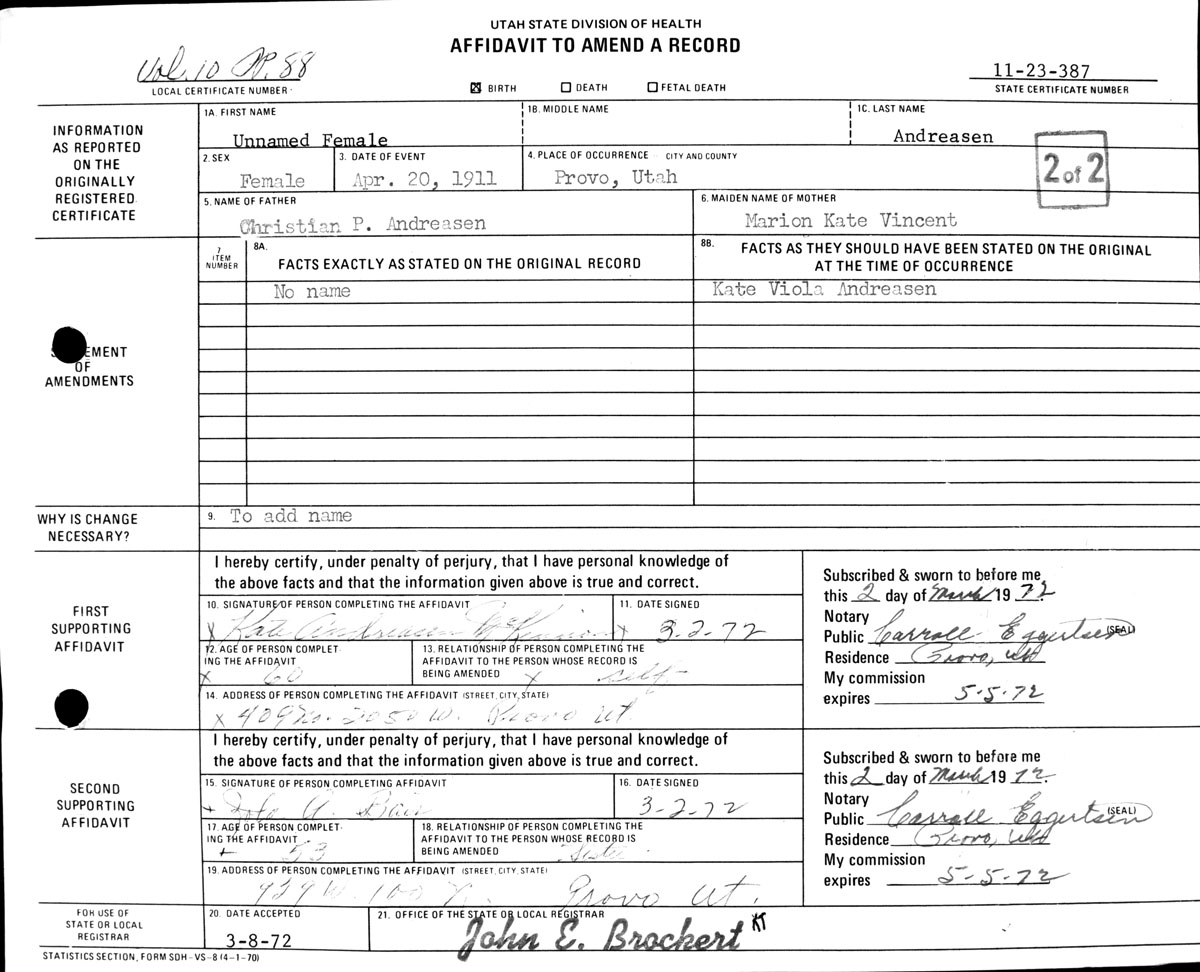 UTAH STATE DIVISION OF HEALTH
AFFIDAVIT TO AMEND A RECORD
Vol. 10 P. 88
LOCAL CERTIFICATE NUMBER
☒ BIRTH ☐ DEATH ☐ FETAL DEATH
11-23-387
STATE CERTIFICATE NUMBER
INFORMATION
AS REPORTED
ON THE
ORIGINALLY
REGISTERED
CERTIFICATE
1A. FIRST NAME 1B. MIDDLE NAME 1C. LAST NAME
Unnamed Female Andreasen
2. SEX 3. DATE OF EVENT 4. PLACE OF OCCURRENCE CITY AND COUNTY
Female Apr. 20, 1911 Provo, Utah
2 of 2
5. NAME OF FATHER 6. MAIDEN NAME OF MOTHER
Christian P. Andreasen Marion Kate Vincent
7 ITEM NUMBER
8A. FACTS EXACTLY AS STATED ON THE ORIGINAL RECORD
8B. FACTS AS THEY SHOULD HAVE BEEN STATED ON THE ORIGINAL
AT THE TIME OF OCCURRENCE
No name Kate Viola Andreasen
EMENT
OF
AMENDMENTS
WHY IS CHANGE
NECESSARY?
9. To add name
FIRST
SUPPORTING
AFFIDAVIT
I hereby certify, under penalty of perjury, that I have personal knowledge of
the above facts and that the information given above is true and correct.
10. SIGNATURE OF PERSON COMPLETING THE AFFIDAVIT 11. DATE SIGNED
x Kate Andreasen McKinnon x 3-2-72
12. AGE OF PERSON COMPLET-
ING THE AFFIDAVIT
x 60
13. RELATIONSHIP OF PERSON COMPLETING THE
AFFIDAVIT TO THE PERSON WHOSE RECORD IS
BEING AMENDED x self
14. ADDRESS OF PERSON COMPLETING THE AFFIDAVIT (STREET, CITY, STATE)
x 409 No. 2050 W. Provo Ut.
Subscribed & sworn to before me
this 2 day of March 19 72.
Notary
Public Carroll Eggertsen (SEAL)
Residence Provo, Utah
My commission
expires 5-5-72
SECOND
SUPPORTING
AFFIDAVIT
I hereby certify, under penalty of perjury, that I have personal knowledge of
the above facts and that the information given above is true and correct.
15. SIGNATURE OF PERSON COMPLETING AFFIDAVIT 16. DATE SIGNED
A. Bair 3-2-72
17. AGE OF PERSON COMPLET-
ING THE AFFIDAVIT
53
18. RELATIONSHIP OF PERSON COMPLETING THE
AFFIDAVIT TO THE PERSON WHOSE RECORD IS
BEING AMENDED Sister
19. ADDRESS OF PERSON COMPLETING THE AFFIDAVIT (STREET, CITY, STATE)
W. 100 Provo Ut.
Subscribed & sworn to before me
this 2 day of March 19 72.
Notary
Public Carroll Eggertsen (SEAL)
Residence Provo, Utah
My commission
expires 5-5-72
FOR USE OF
STATE OR LOCAL
REGISTRAR
20. DATE ACCEPTED 21. OFFICE OF THE STATE OR LOCAL REGISTRAR
3-8-72 John E. Brockert KT
STATISTICS SECTION, FORM SDH-VS-8 (4-1-70)